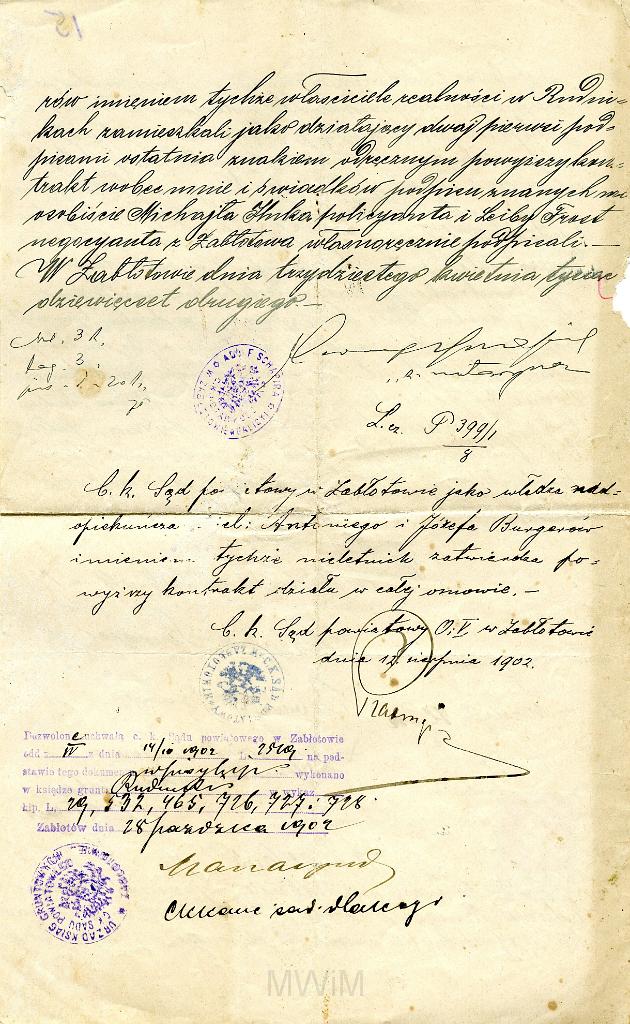 15
rów imieniem tychże właściciele realności w Rudni-
kach zamieszkali jako działający dwaj pierwsi pod-
pisami ostatnia znakiem odręcznym powyższy kon-
trakt wobec mnie i świadków podpisu znanych mi
osobiście Michajła Huka policyanta i Leiby Frost
negocyanta z Zabłotowa własnoręcznie podpisali.—
W Zabłotowie dnia trzydziestego kwietnia tysiąc
dziewięćset drugiego.—
Nal. 3 k.
Leg. 3
L. cz. P 399/1
8
C. k. Sąd powiatowy w Zabłotowie jako władza nad-
opiekuńcza Antoniego i Józefa Burgerów
imieniem tychże nieletnich zatwierdza po-
wyższy kontrakt działu w całej osnowie.—
C. k. Sąd powiatowy O. V w Zabłotowie
dnia 12 sierpnia 1902.
Dozwolone uchwałą c. k. Sądu powiatowego w Zabłotowie
odd. IV z dnia 14/10 1902 L. na pod-
stawie tego dokumentu wykonano
w księdze grunt. Rudniki wykaz
hip. L. 29, 532, 465, 726, 727 i 728
Zabłotów dnia 28 października 1902
URZĄD KSIĄG GRUNTOWYCH C.K. SĄDU POWIATOWEGO
MWiM